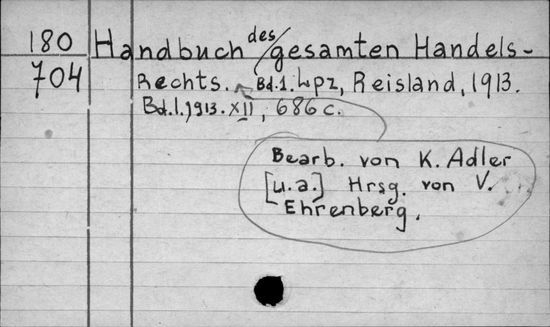 180 Handbuch des gesamten Handels-
704 Rechts. Bd.1. Lpz, Reisland, 1913.
Bd.1.1913. XII, 686 c.
Bearb. von K. Adler
[u.a.] Hrsg. von V.
Ehrenberg.